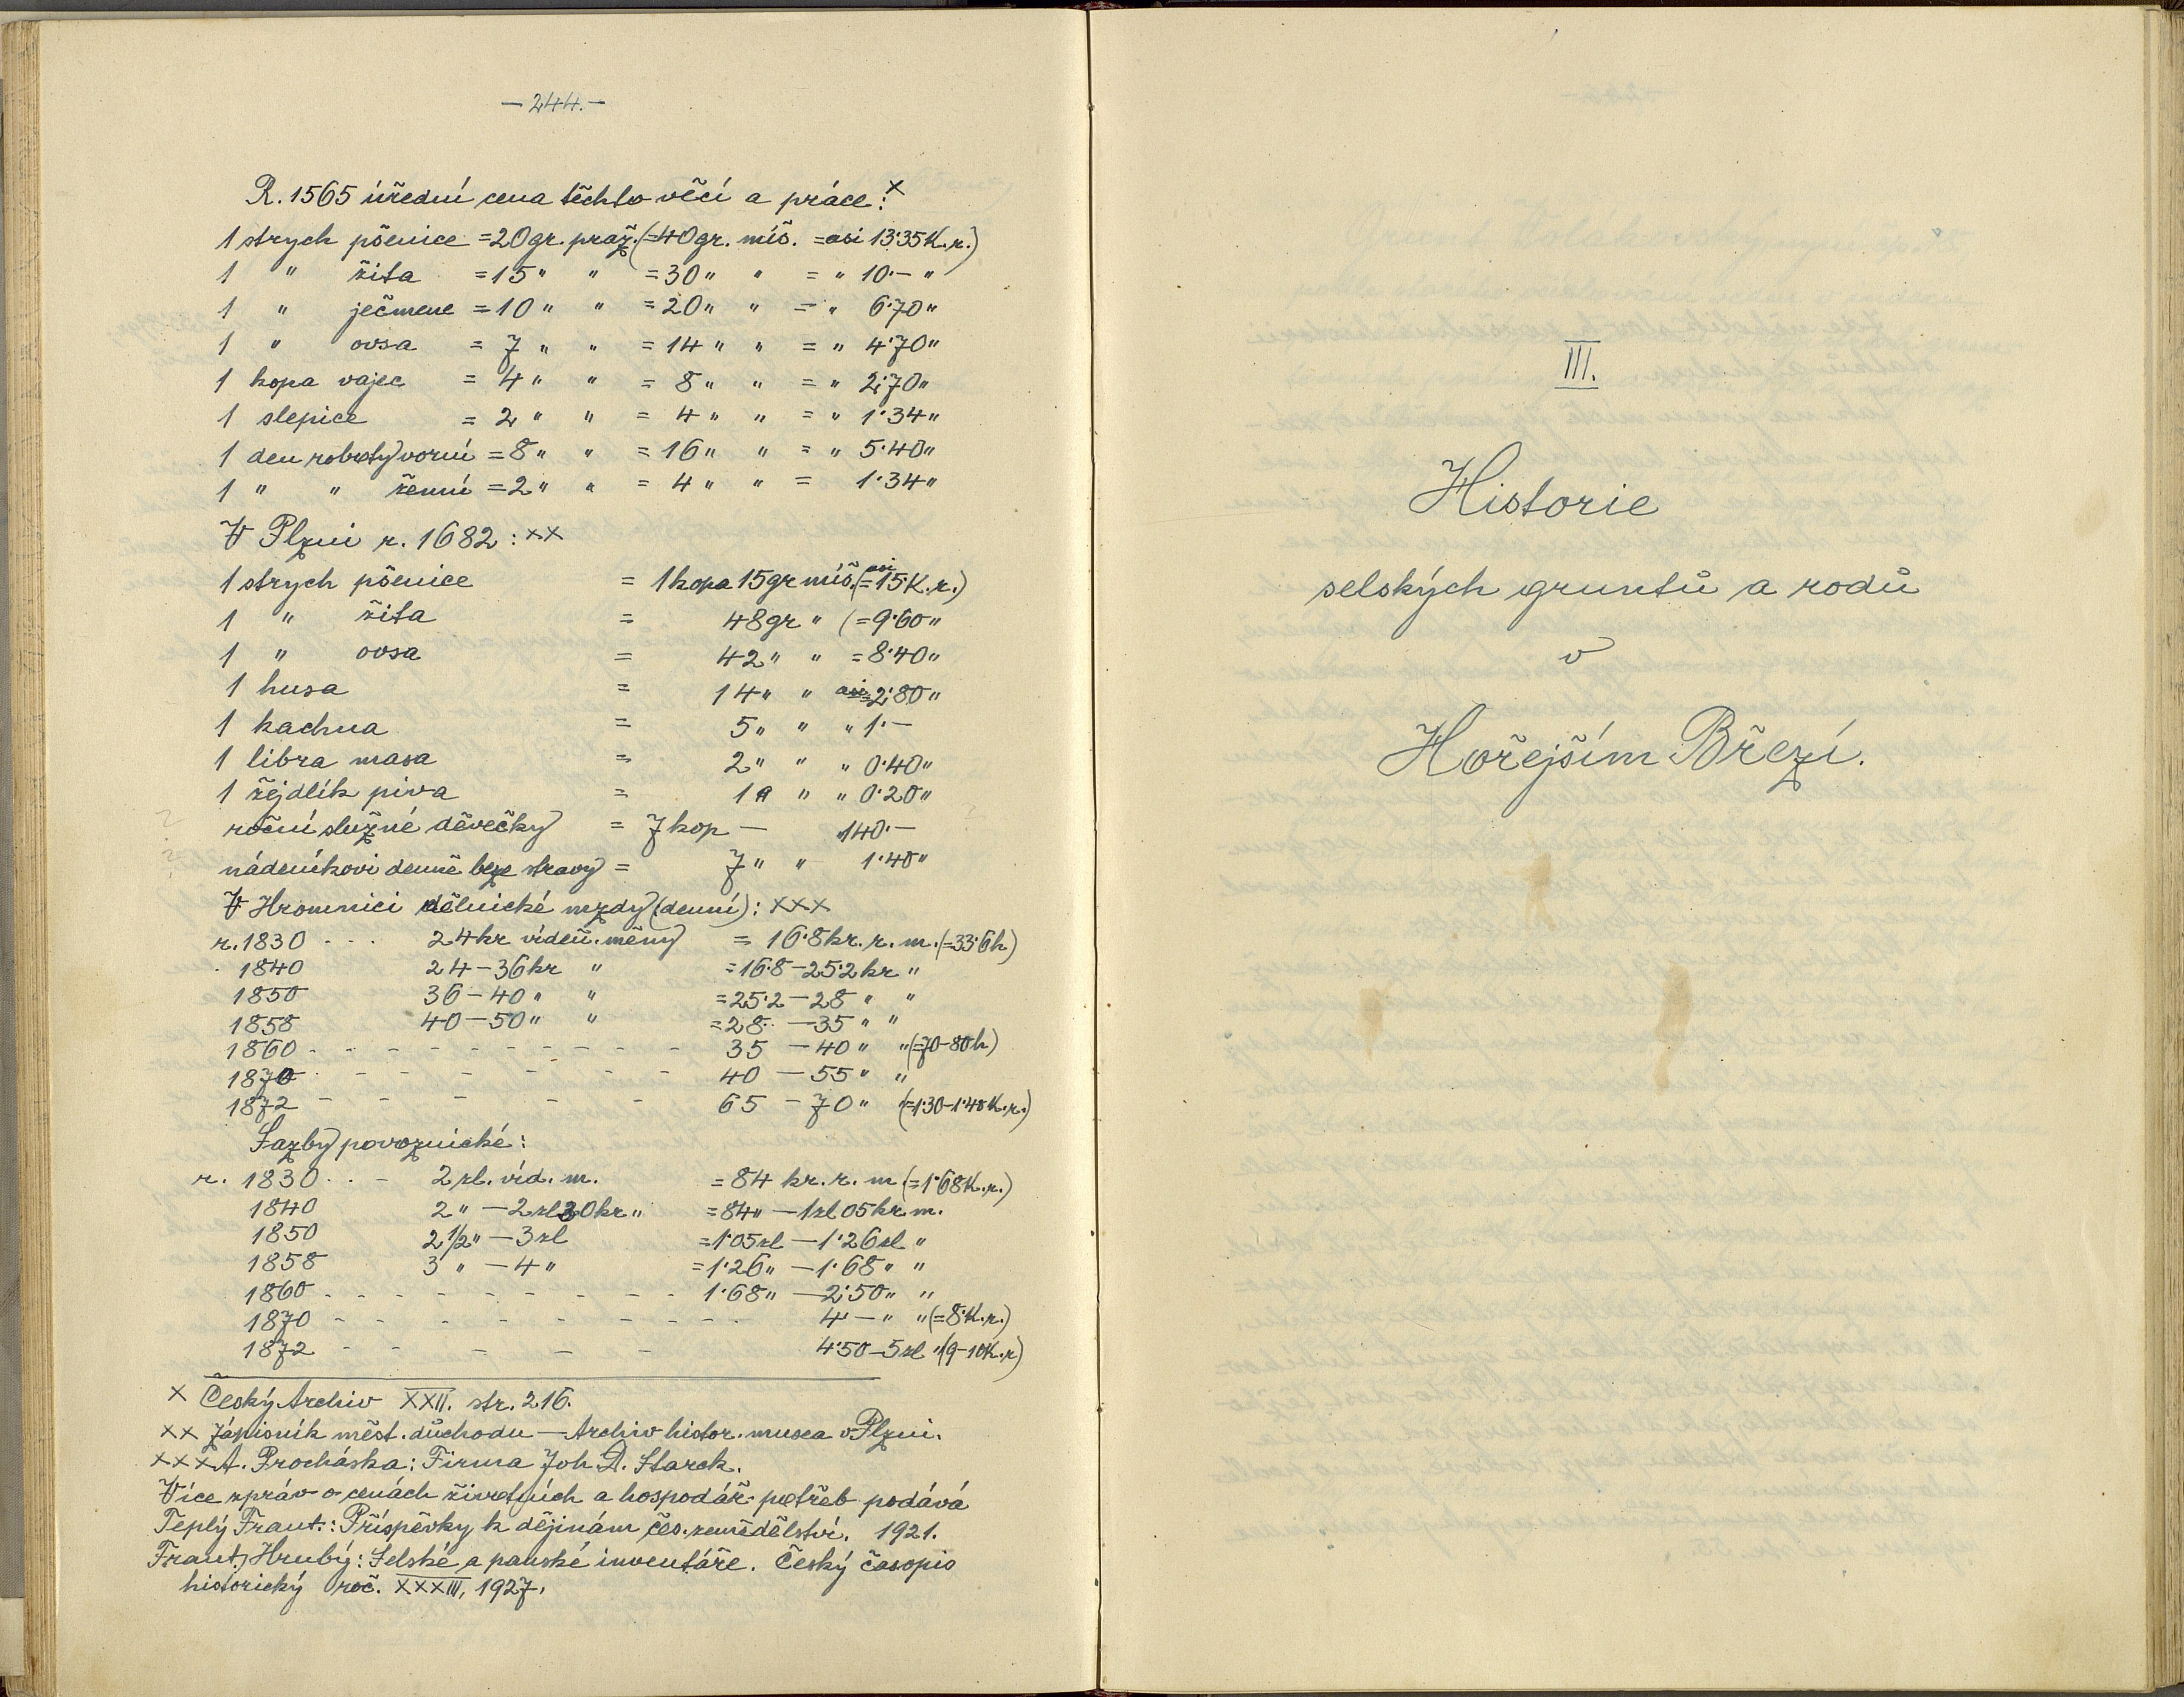 —244.—
R. 1565 úřední cena těchto věcí a práce: ×
1 strych pšenice = 20 gr. praž. (= 40 gr. míš. = asi 13·35 K. r.)
1 " žita = 15 " " = 30 " " = " 10·— "
1 " ječmene = 10 " " = 20 " " = " 6·70 "
1 " ovsa = 7 " " = 14 " " = " 4·70 "
1 kopa vajec = 4 " " = 8 " " = " 2·70 "
1 slepice = 2 " " = 4 " " = " 1·34 "
1 den roboty vorní = 8 " " = 16 " " = " 5·40 "
1 " " ženní = 2 " " = 4 " " = 1·34 "
V Plzni r. 1682: ××
1 strych pšenice = 1 kopa 15 gr míš. (= asi 15·K. r.)
1 " žita = 48 gr " (= 9·60 "
1 " ovsa = 42 " " = 8·40 "
1 husa = 14 " " asi 2·80 "
1 kachna = 5 " " " 1·—
1 libra masa = 2 " " " 0·40 "
1 žejdlík piva = 1 " " " 0·20 "
roční služné děvečky = 7 kop — 140·—
nádeníkovi denně beze stravy = 7 " " 1·40 "
V Hromnici dělnické mzdy (denní): ×××
r. 1830 - - - 24 kr vídeň. měny = 16·8 kr. r. m. (= 33·6 h)
1840 24—36 kr " = 16·8—25·2 kr "
1850 36—40 " " = 25·2—28 " "
1858 40—50 " " = 28·—35 " "
1860 - - - - - - - - - - 35—40 " " (= 70-80 h)
1870 - - - - - - - 40—55 " "
1872 - - - - - - 65—70 " (= 1·30-1·40 K. r.)
Sazby povoznické:
r. 1830 - - - 2 zl. víd. m. = 84 kr. r. m. (= 1·68 K. r.)
1840 2 " — 2 zl 30 kr " = 84 " — 1 zl 05 kr. m.
1850 2 1/2 " — 3 zl = 1·05 zl — 1·26 zl "
1858 3 " — 4 " = 1·26 " — 1·68 " "
1860 - - - - - - - - - - 1·68 " — 2·50 " "
1870 - - - - - - - - - 4·— " " (= 8·K. r.)
1872 - - - - - - 4·50—5 zl " (9-10 K. r)
× Český Archiv XXII. str. 216.
×× Zápisník měst. důchodu — Archiv histor. musea v Plzni.
××× A. Procháska: Firma Joh. D. Starck.
Více zpráv o cenách životních a hospodář. potřeb podává
Teplý Frant.: Příspěvky k dějinám čes. zemědělství. 1921.
Frant. Hrubý: Selské a panské inventáře. Český časopis
historický roč. XXXIII, 1927.
III.
Historie
selských gruntů a rodů
v
Hořejším Březí.